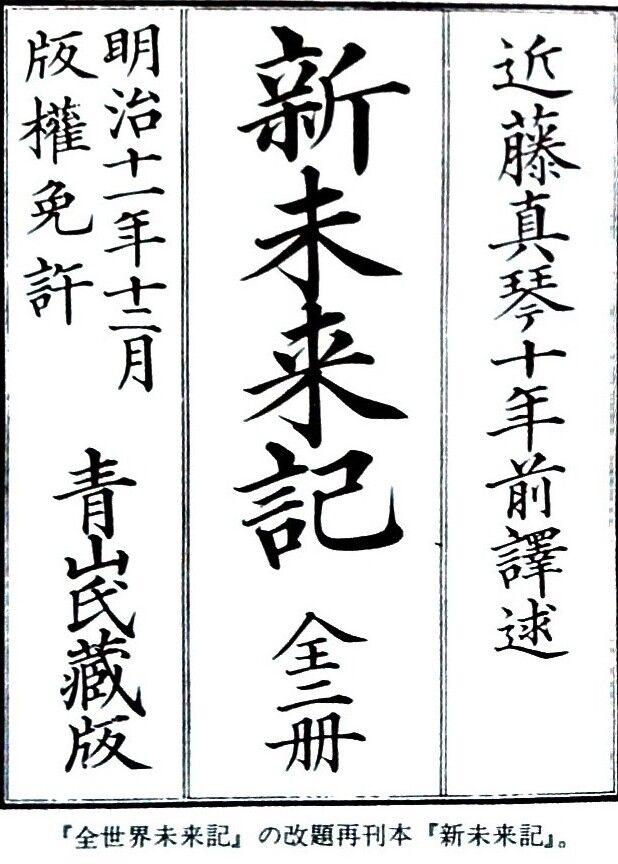 近藤真琴十年前譯述
新未来記 全二冊
明治十一年十二月
版權免許
青山氏藏版
『全世界未来記』の改題再刊本『新未来記』。